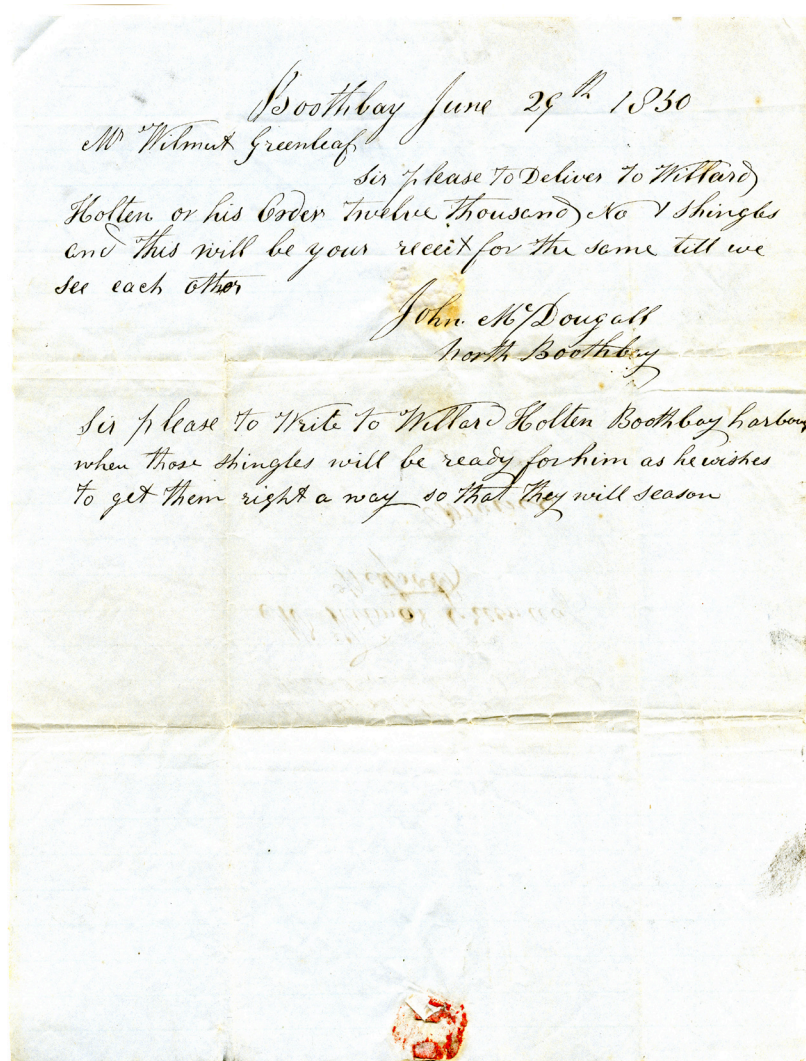 Boothbay June 29th 1850
Mr Wilmut Greenleaf
Sir please to Deliver to Willard
Holten or his Order twelve thousand No 1 Shingles
and this will be your receit for the same till we
see each other
John McDougall
North Boothbay
Sir please to Write to Willard Holten Boothbay harbour
when those shingles will be ready for him as he wishes
to get them right a way so that they will season